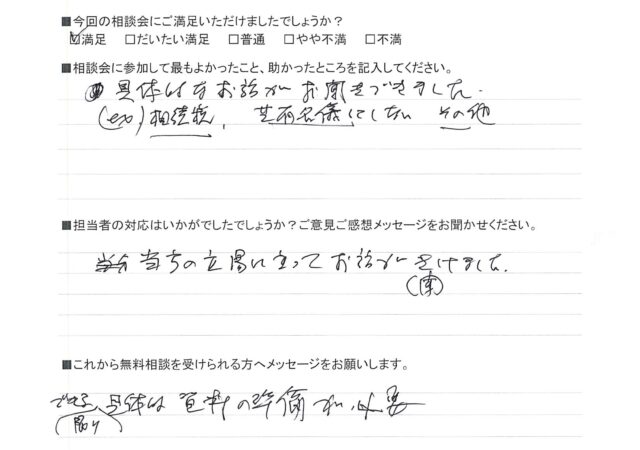 ■今回の相談会にご満足いただけましたでしょうか？
☑満足 □だいたい満足 □普通 □やや不満 □不満
■相談会に参加して最もよかったこと、助かったところを記入してください。
具体的なお話がお聞きできました.
(ex) 相続税, 共有名儀にしない その他
■担当者の対応はいかがでしたでしょうか？ご意見ご感想メッセージをお聞かせください。
当方の立場に立ってお話がきけました.
■これから無料相談を受けられる方へメッセージをお願いします。
できる 具体的 資料の準備が必要
(限り)